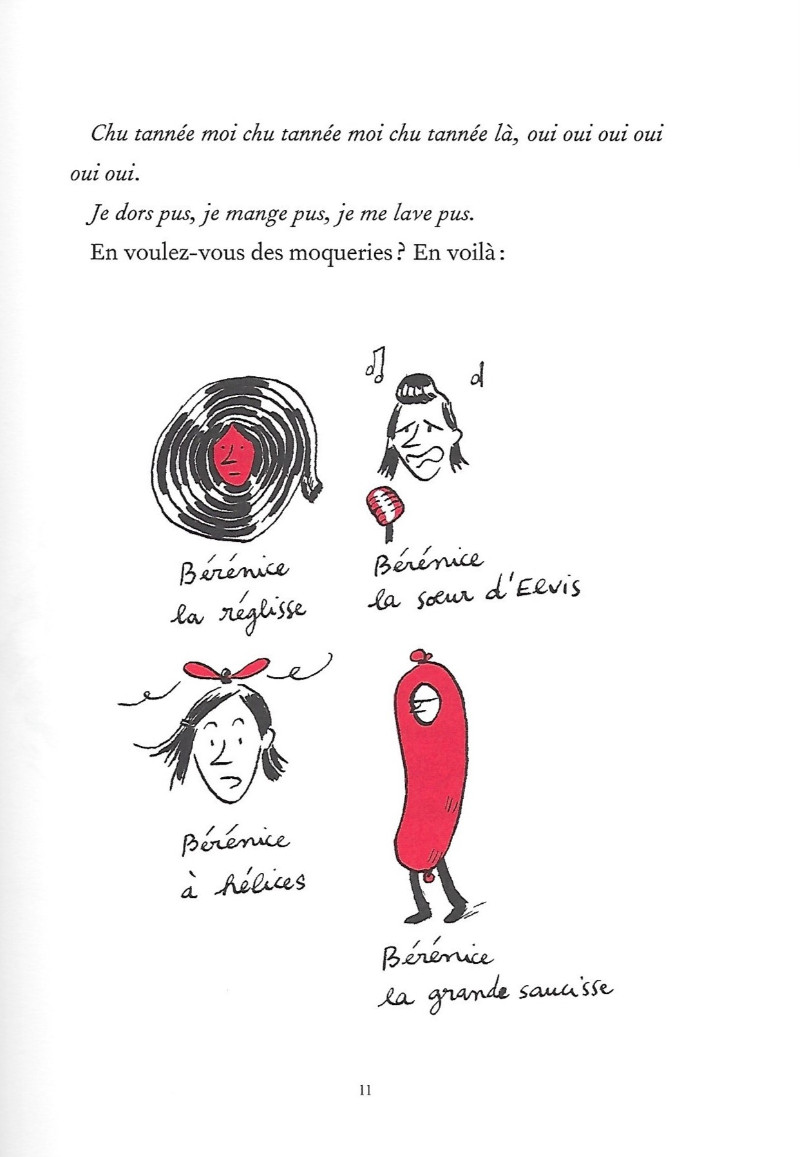 Chu tannée moi chu tannée moi chu tannée là, oui oui oui oui
oui oui.
Je dors pus, je mange pus, je me lave pus.
En voulez-vous des moqueries ? En voilà :
Bérénice
la réglisse
Bérénice
la sœur d'Elvis
Bérénice
à hélices
Bérénice
la grande saucisse
11